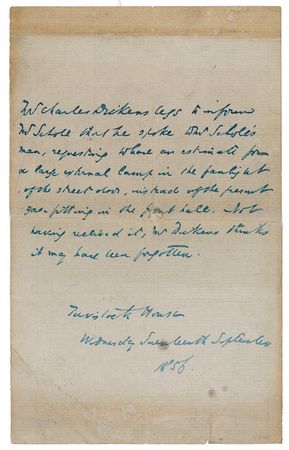 Mr Charles Dickens begs to inform
Mr Scholl that he spoke Mr Scholl's
man, requesting an estimate for
a large external Lamp in the fanlight
of the street door, instead of the present
gas-fitting in the front hall. Not
having received it, Mr Dickens thinks
it may have been forgotten.
Tavistock House
Wednesday Seventeenth September
1856.